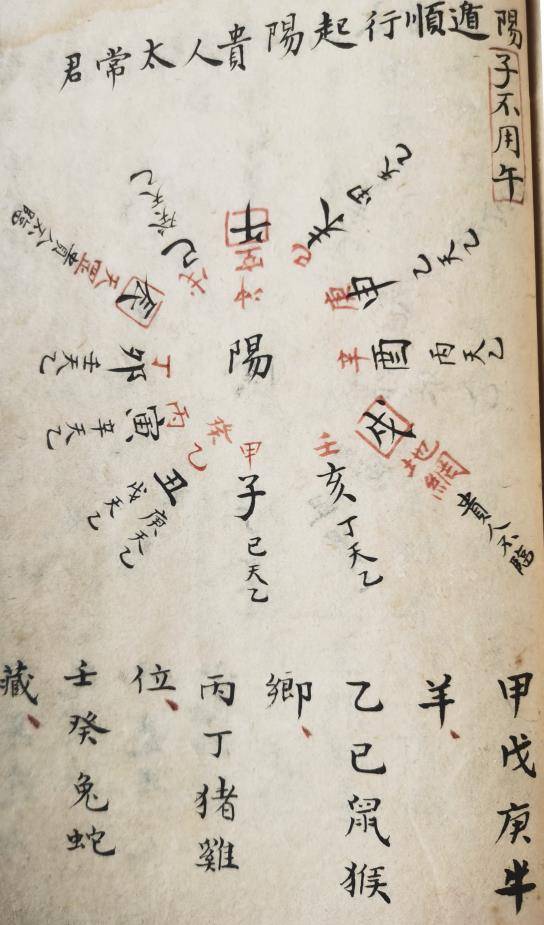 陽子不用午
遁順行起陽貴人太常君
陽
午
己未甲天乙
庚申乙天乙
辛酉丙天乙
戌地網貴人不臨
壬亥丁天乙
甲子己天乙
癸乙丑庚天乙
戊天乙
丙寅辛天乙
丁卯壬天乙
辰天罡貴人不臨
戊巳癸天乙
甲戊庚牛
羊、
乙己鼠猴
鄉、
丙丁猪雞
位、
壬癸兔蛇
藏、